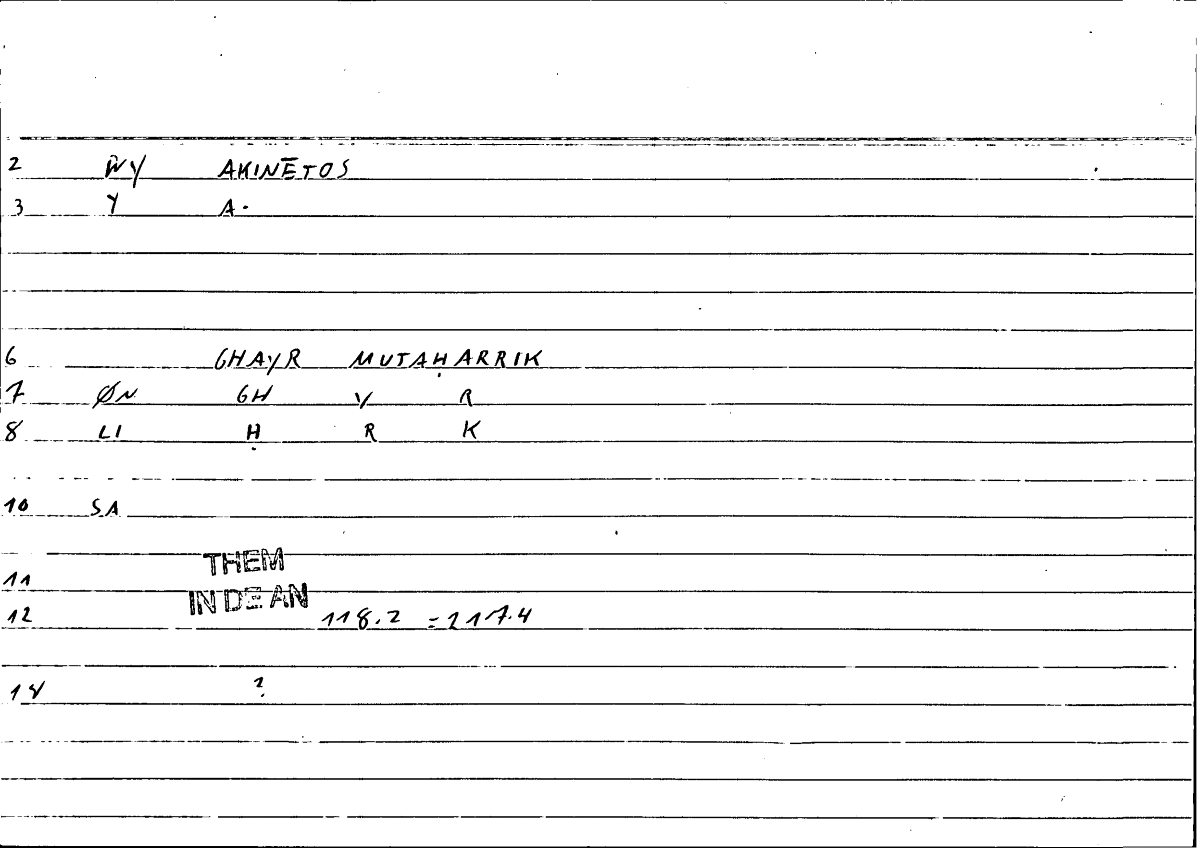 2 WY AKINĒTOS
3 Y A.
6 GHAYR MUTAḤARRIK
7 ØN GH Y R
8 LI Ḥ R K
10 SA
THEM
11
IN DE AN
12 118.2 = 217.4
14 ?